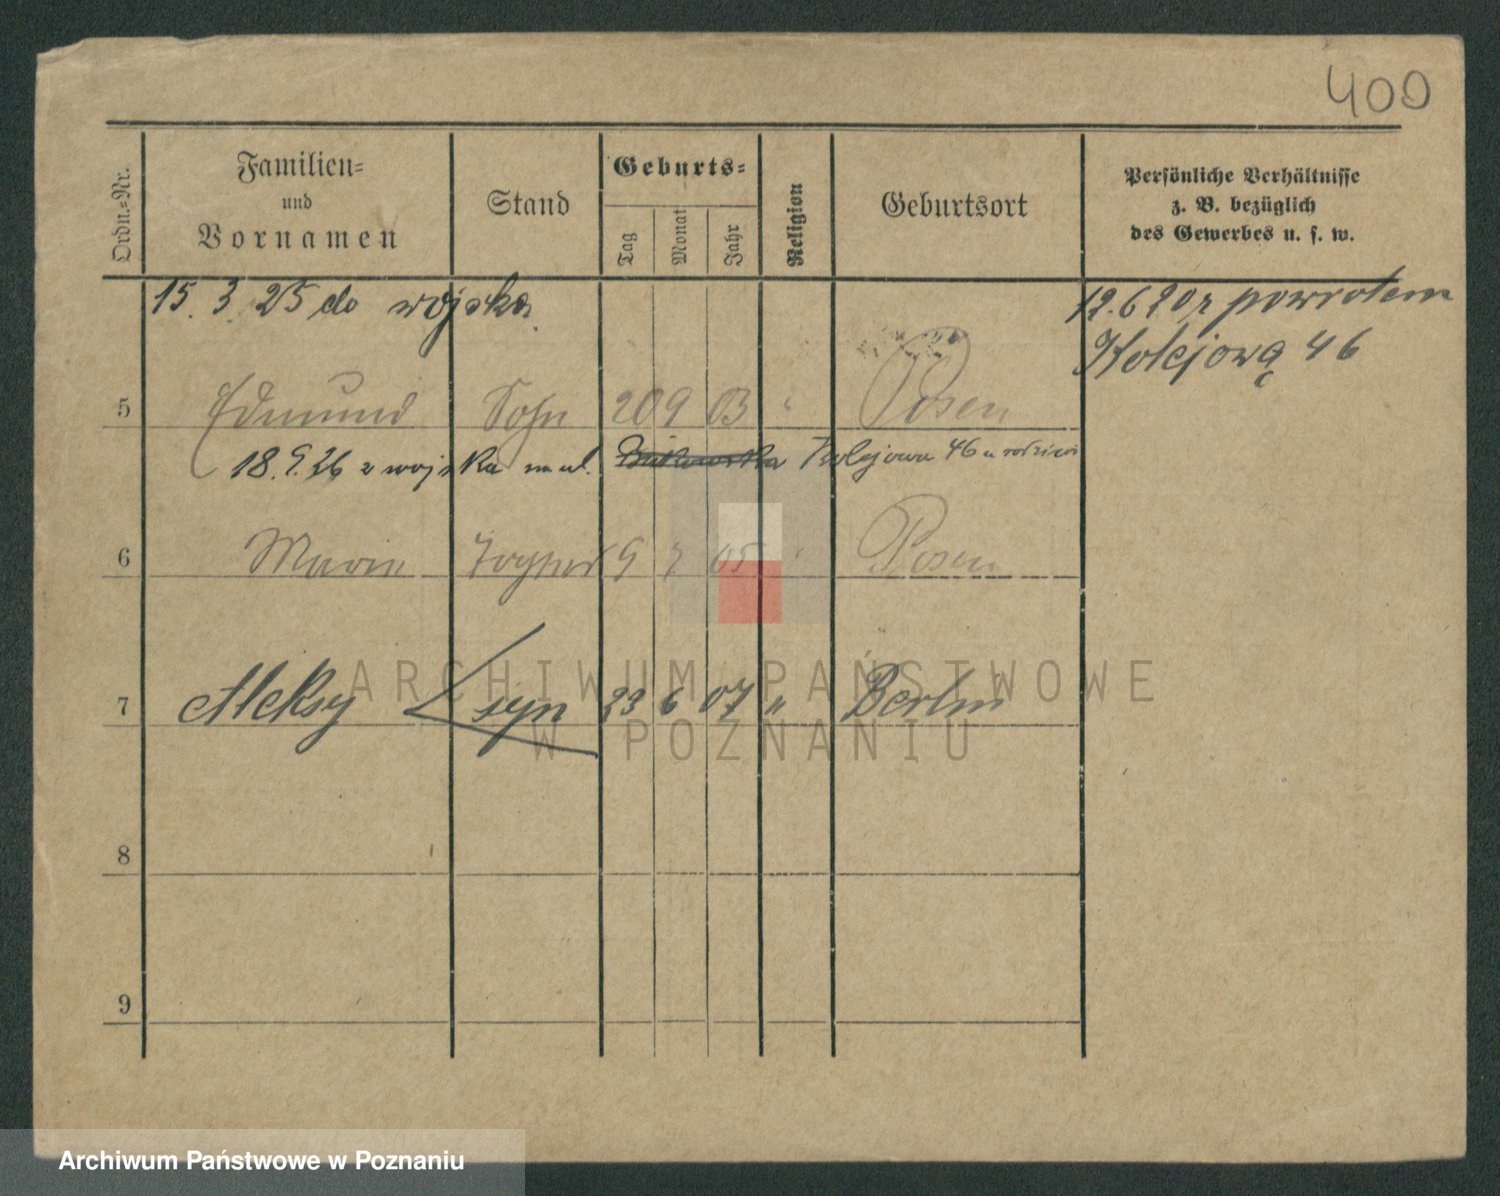 400
Ordn.=Nr.
Familien=
und
Vornamen
Stand
Geburts=
Tag
Monat
Jahr
Religion
Geburtsort
Persönliche Verhältnisse
z. B. bezüglich
des Gewerbes u. s. w.
15. 3. 25 do wojska
12.6 20 r powrotem
Kolejową 46
5 Edmund Sohn 20 9 03 " Posen
18.9.26 z wojska na ul. Bukowska Kolejowa 46 u rodziców
6 Marie 9 7 05 " Posen
7 Aleksy syn 23 6 07 " Berlin
8
9
ARCHIWUM PAŃSTWOWE
W POZNANIU
Archiwum Państwowe w Poznaniu